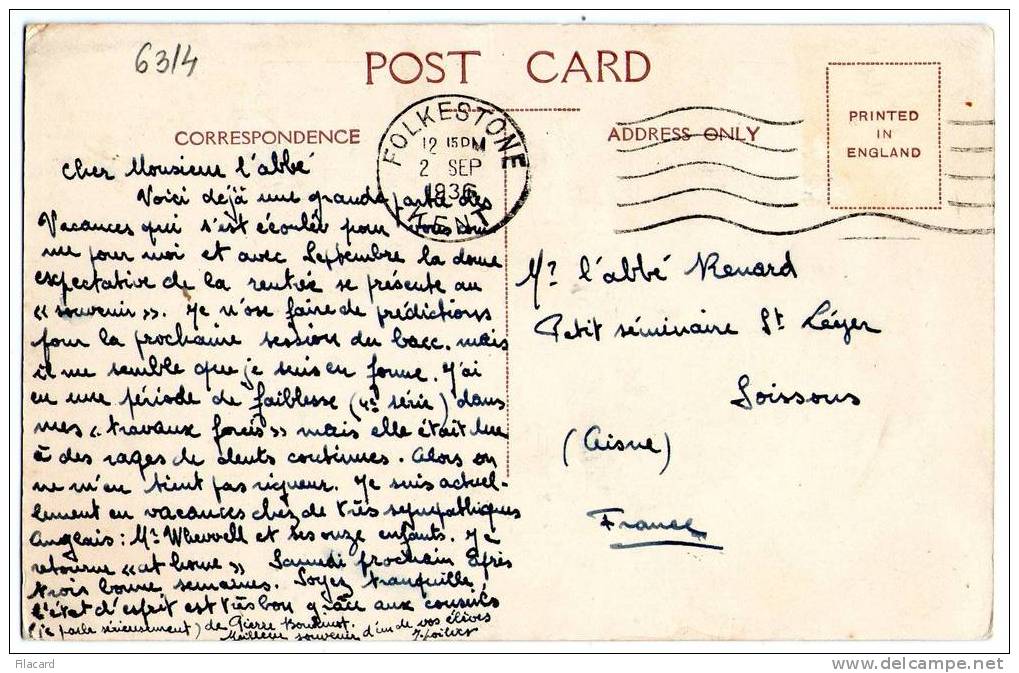 63/4
POST CARD
CORRESPONDENCE
ADDRESS ONLY
PRINTED
IN
ENGLAND
FOLKESTONE
12 15 PM
2 SEP
1936
KENT
Cher Monsieur l'abbé
Voici déjà une grande partie des
Vacances qui s'est écoulée pour vous com
me pour moi et avec Septembre la douce
expectative de la rentrée se présente au
« souvenir ». Je n'ose faire de prédictions
pour la prochaine session du bacc. mais
il me semble que je suis en forme. J'ai
eu une période de faiblesse (4e série) dans
mes « travaux forcés » mais elle était due
à des rages de dents continues. Alors on
ne m'en tient pas rigueur. Je suis actuel-
lement en vacances chez de très sympathiques
Anglais : Mr Whewell et ses onze enfants. Je
retourne « at home » Samedi prochain après
trois bonne semaines. Soyez tranquille
l'état d'esprit est très bon grâce aux conseils
(je parle sérieusement) de Pierre
Meilleur souvenir d'un de vos élèves
Mr l'abbé Renard
Petit séminaire St Léger
Soissons
(Aisne)
France
Filacard
www.delcampe.net